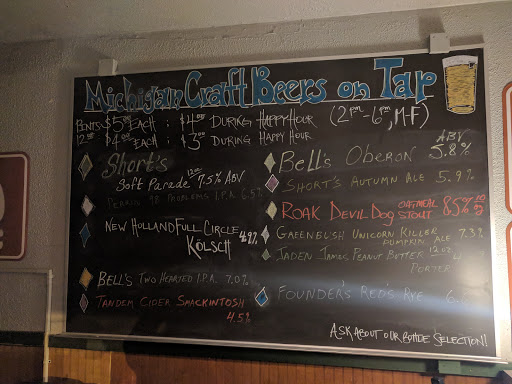 Michigan Craft Beers on Tap
PINTS $5.00 EACH : $4.00 DURING HAPPY HOUR (2PM-6PM, M-F)
12 OZ $4.00 EACH : $3.00 DURING HAPPY HOUR
Short's
SOFT PARADE 12oz 7.5% ABV
PERRIN 98 PROBLEMS I.P.A. 6.5%
NEW HOLLAND FULL CIRCLE
KÖLSCH 4.9%
BELL'S TWO HEARTED I.P.A. 7.0%
TANDEM CIDER SMACKINTOSH
4.5%
ABV
BELL'S OBERON 5.8%
SHORT'S AUTUMN ALE 5.9%
ROAK DEVIL DOG OATMEAL STOUT
GREENBUSH UNICORN KILLER 7.3%
PUMPKIN ALE
JADEN JAMES PEANUT BUTTER
PORTER
FOUNDER'S RED'S RYE
ASK ABOUT OUR BOTTLE SELECTION!